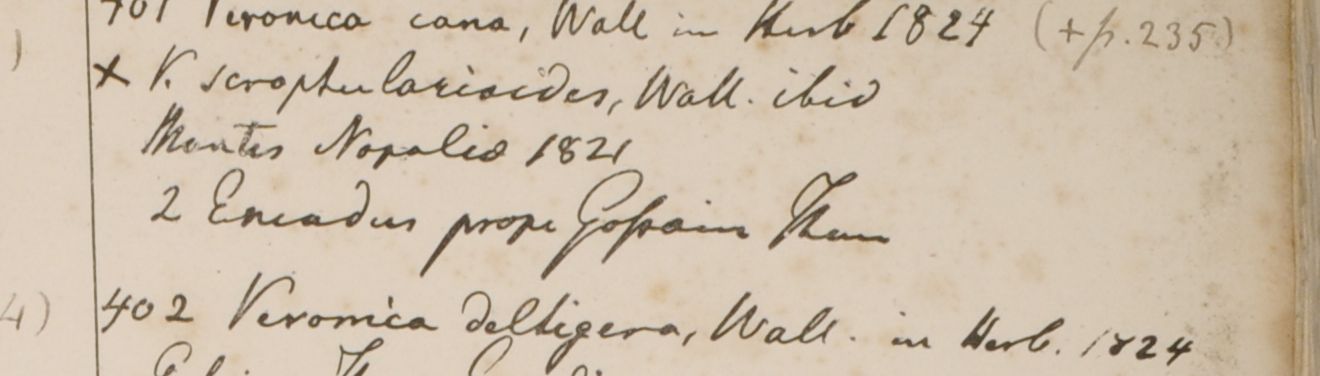 401 Veronica cana, Wall in Herb 1824 (+p. 235)
)
+ V. scrophularioides, Wall. ibid
Montes Napaliæ 1821
2 Emodus prope Gossain Than
4) 402 Veronica deltigera, Wall. in Herb. 1824